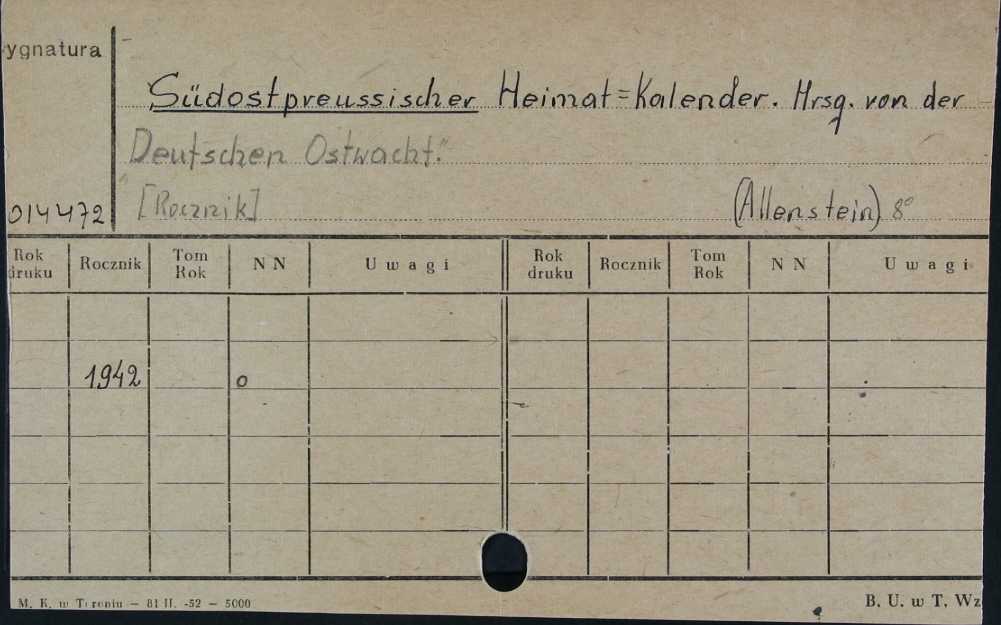 ygnatura
Südostpreussischer Heimat=Kalender. Hrsg. von der
„Deutschen Ostwacht."
014472 [Rocznik] (Allenstein) 8°
Rok druku Rocznik Tom Rok N N Uwagi Rok druku Rocznik Tom Rok N N Uwagi
1942 o
M. K. w Toruniu — 81 II. -52 — 5000 B. U. w T. Wz